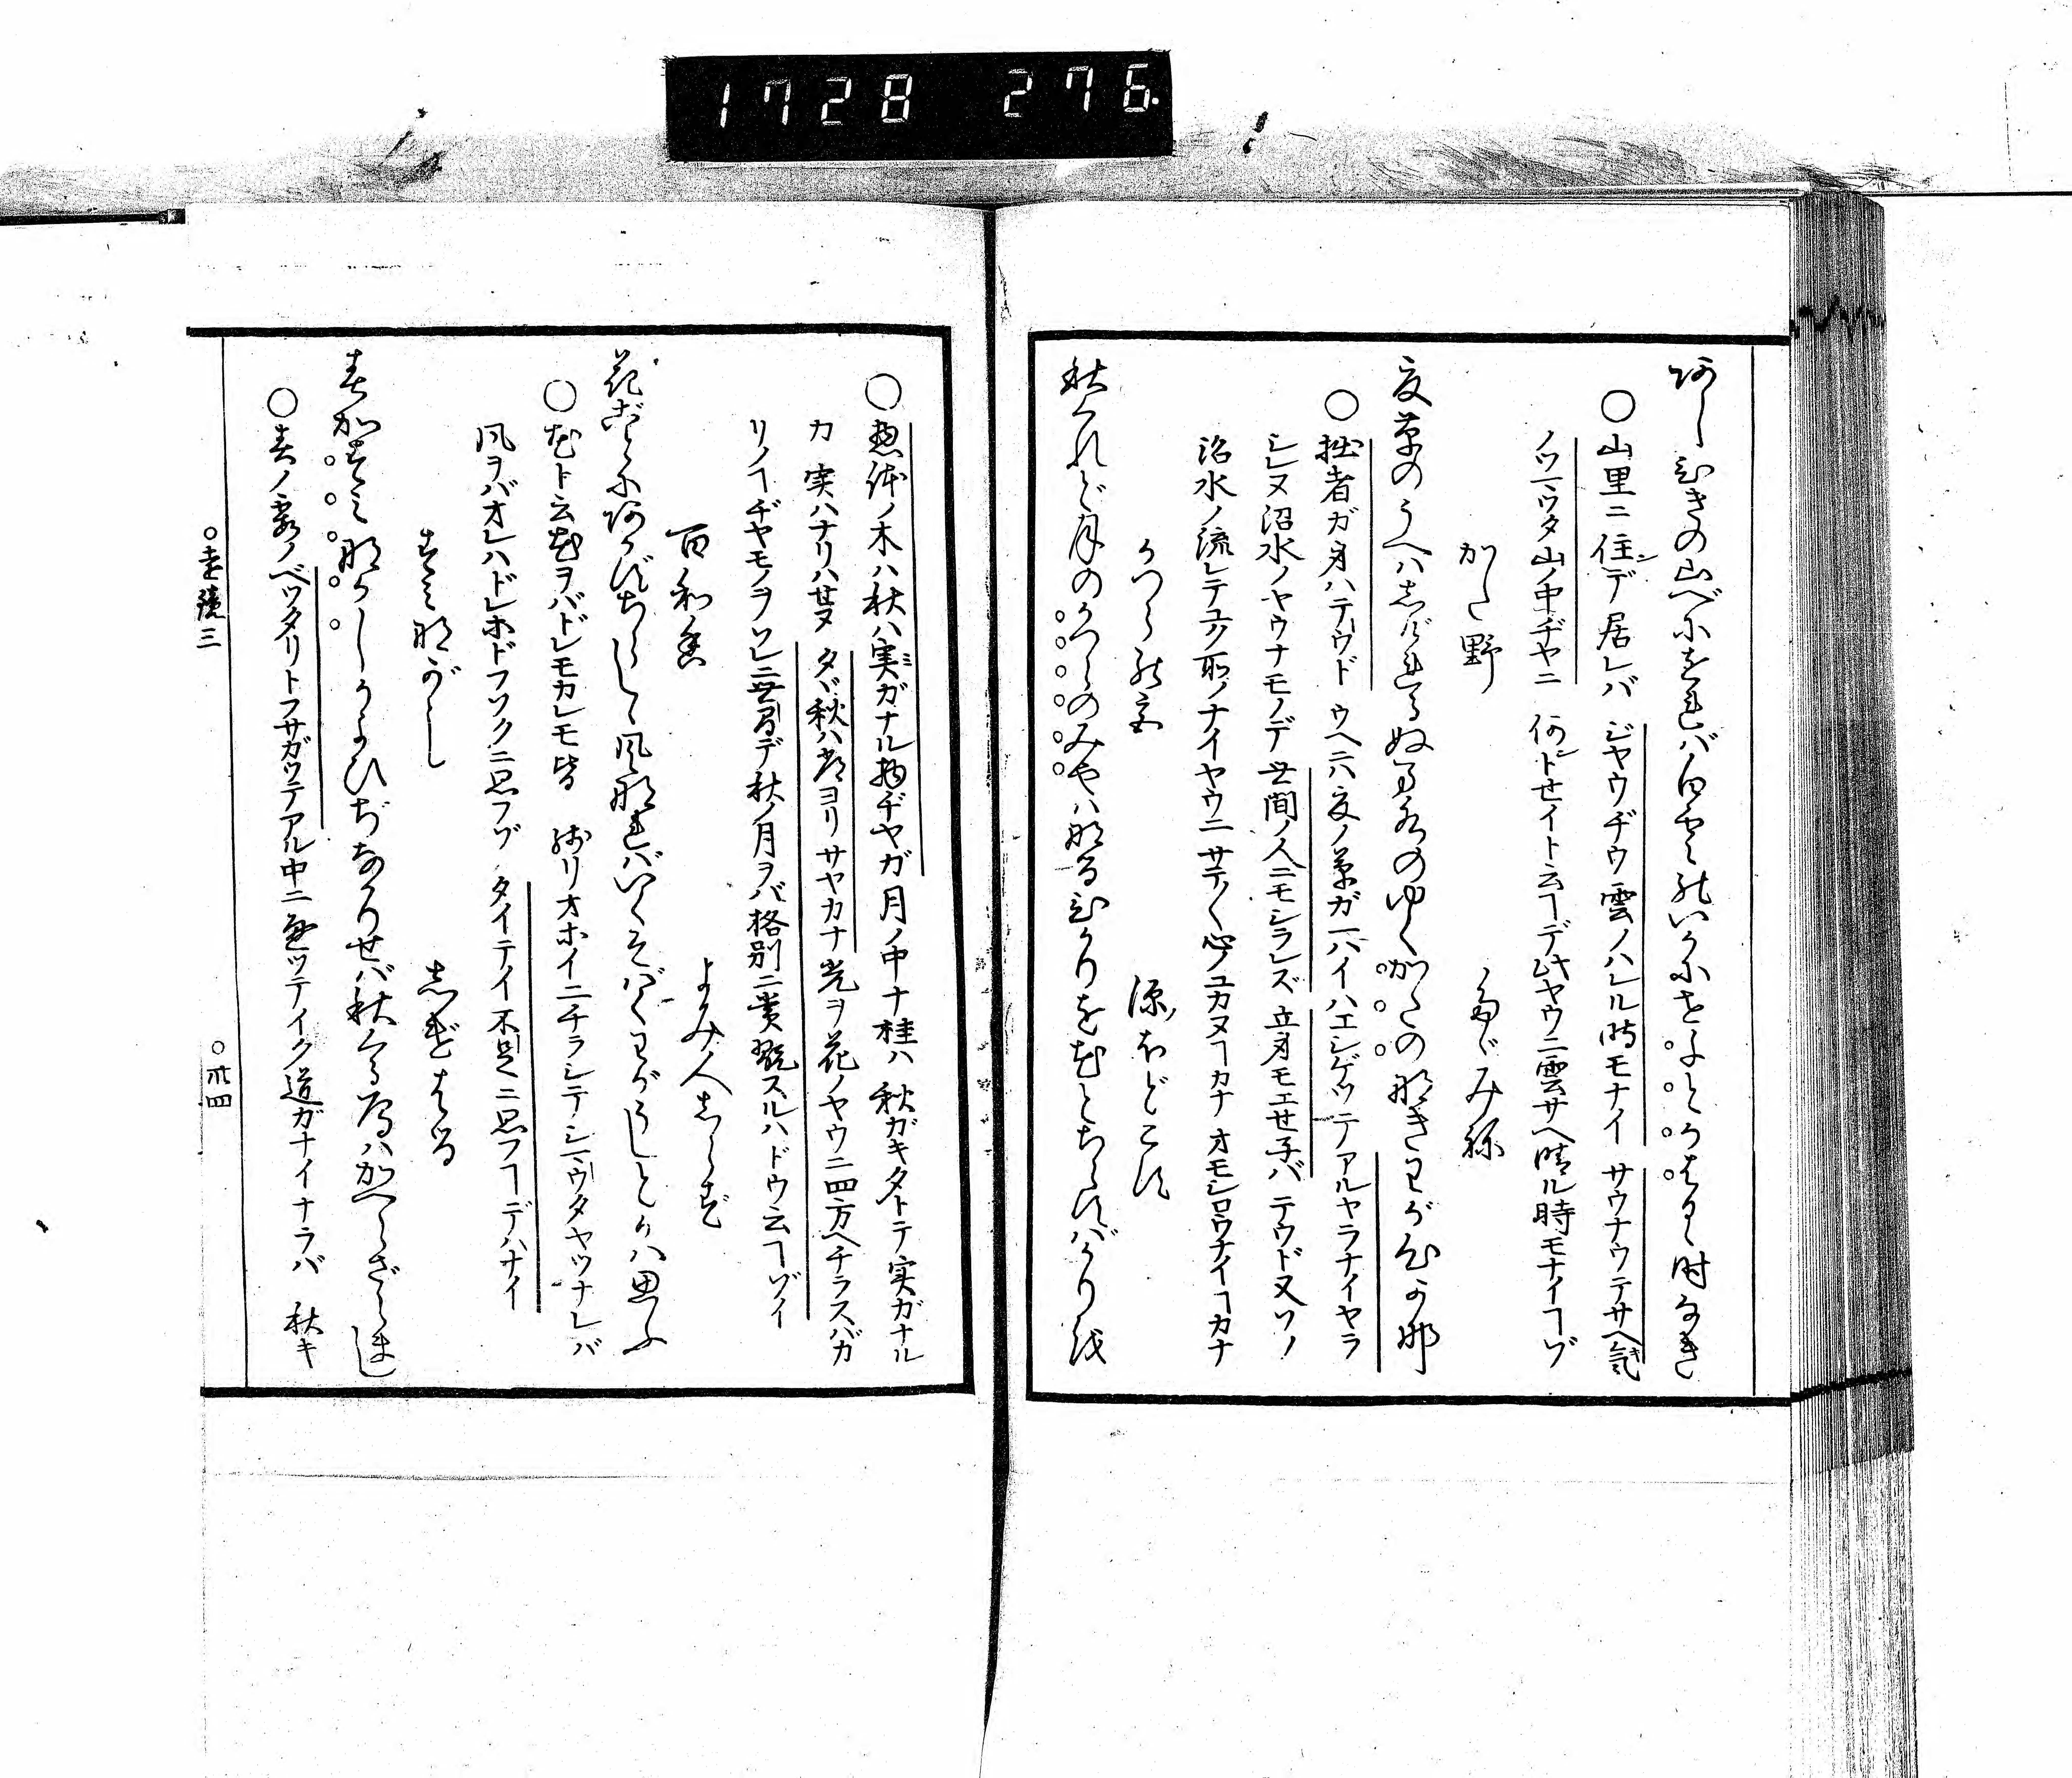 1728 276.
あしひきの山べにをればしら雲のいかにせよとかはるゝ時なき
○山里ニ住ンデ居レバ ジヤウヂウ雲ノハレル時モナイ サウナウテサヘ気
ノツマツタ山ノ中ヂヤニ 何ントセイト云フヿデ此ヤウニ雲サヘ晴ル時モナイヿゾ
かた野 たゞみね
夏草のうへはしげれるぬま水のゆくかたのなきわが心かな
○拙者ガ身ハテウド ウヘニハ夏ノ草ガ一パイハエシゲツテアルヤラナイヤラ
シレヌ沼水ノヤウナモノデ 世間ノ人ニモシラレズ 立身モエセ子バ テウド又ソノ
沼水ノ流レテユク所ノナイヤウニ サテ〳〵心ノユカヌヿカナ オモシロウナイヿカナ
かつらの宮 源ほどこす
秋くれど月のかつらのみやはなるひかりを花とちらすばかりを
○惣体ノ木ハ秋ハ実ガナル物ヂヤガ 月ノ中ナ桂ハ 秋ガキタトテ実ガナル
カ 実ハナリハセヌ タヾ秋ハ常ヨリサヤカナ光ヲ花ノヤウニ四方ヘチラスバカ
リノヿヂヤモノヲ ソレニ世間デ秋ノ月ヲバ格別ニ賞翫スルハドウ云フヿゾイ
百和香 よみ人しらず
花ごとにあかずちらしゝ風なればいくそばくわがうしとかは思ふ
○花ト云花ヲバドレモカレモ皆 残リオホイニチラシテシマウタヤツナレバ
風ヲバオレハドレホドフソクニ思フゾ タイテイ不足ニ思フヿデハナイ
すみながし しげはる
春がすみなかしかよひぢなかりせば秋くる雁はかへらざらまし
○春ノ霞ノベツタリトフサガツテアル中ニ 通ツテイク道ガナイナラバ 秋キ
○遠鏡三 ○廿四